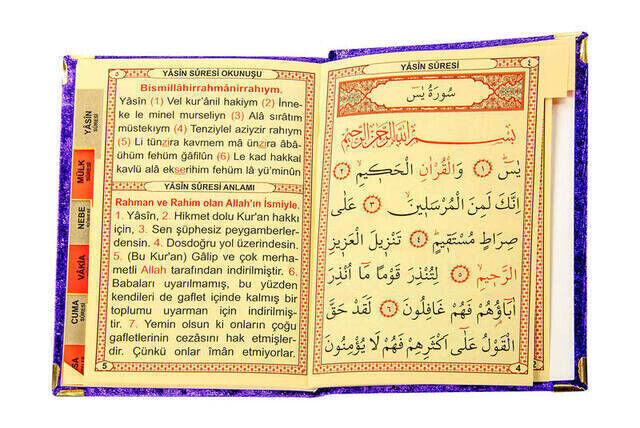 YÂSİN SÛRESİ OKUNUŞU
٥
Bismillâhirrahmânirrahıym.
Yâsîn (1) Vel kur'ânil hakiym (2) İnne-
ke le minel murseliyn (3) Alâ sırâtım
müstekıym (4) Tenziylel aziyzir rahıym
(5) Li tünzira kavmem mâ ünzira âbâ-
ühüm fehüm gâfilûn (6) Le kad hakkal
kavlü alâ ekserihim fehüm lâ yü'minûn
YÂSİN SÛRESİ ANLAMI
Rahman ve Rahim olan Allah'ın İsmiyle.
1. Yâsin, 2. Hikmet dolu Kur'an hakkı
için, 3. Sen şüphesiz peygamberler-
densin. 4. Dosdoğru yol üzerindesin.
5. (Bu Kur'an) Gâlip ve çok merha-
metli Allah tarafından indirilmiştir. 6.
Babaları uyarılmamış, bu yüzden
kendileri de gaflet içinde kalmış bir
toplumu uyarman için indirilmiş-
tir. 7. Yemin olsun ki onların çoğu
gafletlerinin cezasını hak etmişler-
dir. Çünkü onlar îmân etmiyorlar.
5
YÂSİN SÛRESİ
MÜLK SÛRESİ
NEBE SÛRESİ
VÂKIA SÛRESİ
CUMA SÛRESİ
YÂSİN SÛRESİ
٤
سُورَةُ يٰسٓ
بِسْمِ اللّٰهِ الرَّحْمٰنِ الرَّحِيمِ
يٰسٓ ١ وَالْقُرْاٰنِ الْحَكِيمِ ٢
اِنَّكَ لَمِنَ الْمُرْسَلِينَ ٣ عَلٰى
صِرَاطٍ مُسْتَقِيمٍ ٤ تَنْزِيلَ الْعَزِيزِ
الرَّحِيمِ ٥ لِتُنْذِرَ قَوْمًا مَٓا اُنْذِرَ
اٰبَٓاؤُ۬هُمْ فَهُمْ غَافِلُونَ ٦ لَقَدْ حَقَّ
الْقَوْلُ عَلٰٓى اَكْثَرِهِمْ فَهُمْ لَا يُؤْمِنُونَ
4